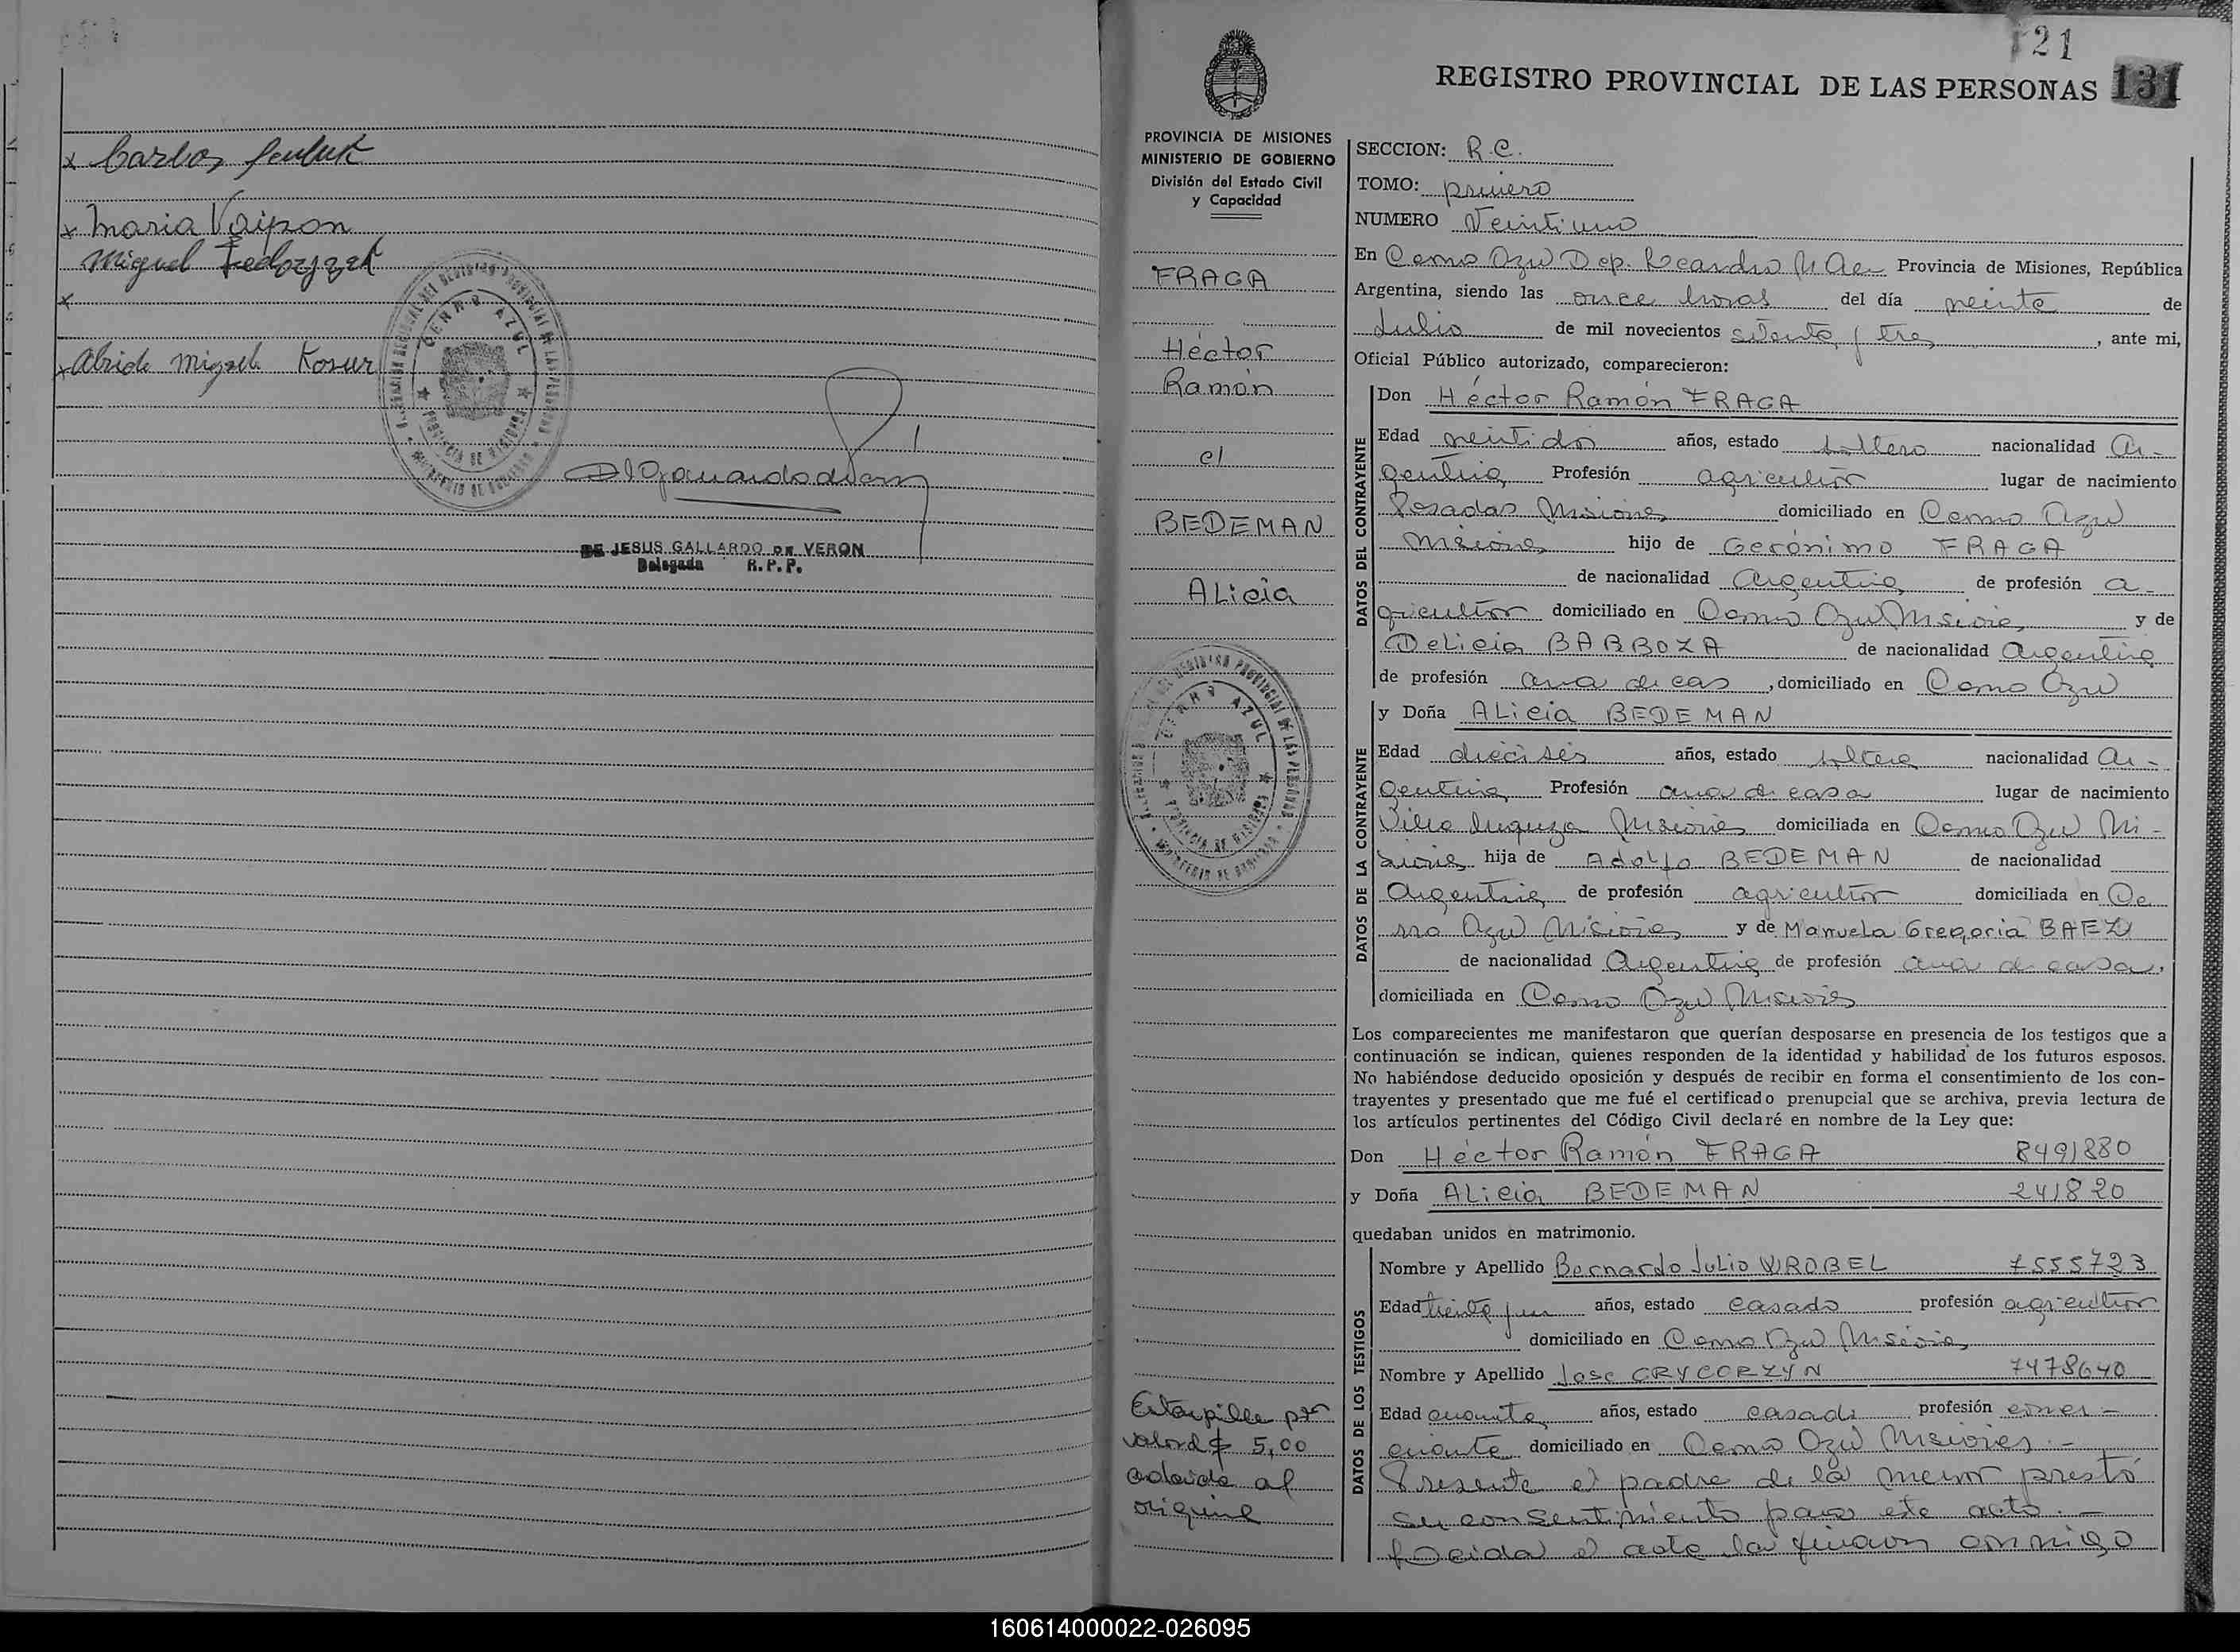 x Carlos
x Maria Vaipon
Miguel Fedorzzek
x
x Miguel Kosur
CERRO AZUL
PROVINCIA DE MISIONES
DE JESUS GALLARDO DE VERON
Delegada R. P. P.
121
REGISTRO PROVINCIAL DE LAS PERSONAS 131
PROVINCIA DE MISIONES
MINISTERIO DE GOBIERNO
División del Estado Civil
y Capacidad
FRAGA
Héctor
Ramón
c/
BEDEMAN
ALicia
CERRO AZUL
PROVINCIA DE MISIONES
Estampilla por
valor d $ 5,00
adherida al
original
SECCION: R.C.
TOMO: primero
NUMERO Veintiuno
En Cerro Azul Dep. Leandro N Alem Provincia de Misiones, República
Argentina, siendo las once horas del día veinte de
Julio de mil novecientos setenta y tres, ante mi,
Oficial Público autorizado, comparecieron:
DATOS DEL CONTRAYENTE
Don Héctor Ramón FRAGA
Edad veintidos años, estado soltero nacionalidad Ar-
gentina Profesión agricultor lugar de nacimiento
Posadas Misiones domiciliado en Cerro Azul
Misiones hijo de Gerónimo FRAGA
de nacionalidad Argentina de profesión a-
gricultor domiciliado en Cerro Azul Misiones y de
Delicia BARBOZA de nacionalidad Argentina
de profesión ama de cas, domiciliado en Cerro Azul
DATOS DE LA CONTRAYENTE
y Doña ALicia BEDEMAN
Edad dieciseis años, estado soltera nacionalidad Ar-
gentina Profesión ama de casa lugar de nacimiento
Villa Misiones domiciliada en Cerro Azul Mi-
siones hija de Adolfo BEDEMAN de nacionalidad
Argentina de profesión agricultor domiciliada en Ce
rro Azul Misiones y de Manuela Gregoria BAEZ
de nacionalidad Argentina de profesión ama de casa,
domiciliada en Cerro Azul Misiones
Los comparecientes me manifestaron que querían desposarse en presencia de los testigos que a
continuación se indican, quienes responden de la identidad y habilidad de los futuros esposos.
No habiéndose deducido oposición y después de recibir en forma el consentimiento de los con-
trayentes y presentado que me fué el certificado prenupcial que se archiva, previa lectura de
los artículos pertinentes del Código Civil declaré en nombre de la Ley que:
Don Héctor Ramón FRAGA 8491880
y Doña ALicia BEDEMAN 241820
quedaban unidos en matrimonio.
DATOS DE LOS TESTIGOS
Nombre y Apellido Bernardo Julio WROBEL 7555723
Edad treinta y un años, estado casado profesión agricultor
domiciliado en Cerro Azul Misiones
Nombre y Apellido Jose CRYCORZYN 7478640
Edad cuarenta años, estado casado profesión comer-
ciante domiciliado en Cerro Azul Misiones.-
Presente el padre de la menor prestó
su consentimiento para este acto.-
Leida el acta la firmaron conmigo
160614000022-026095